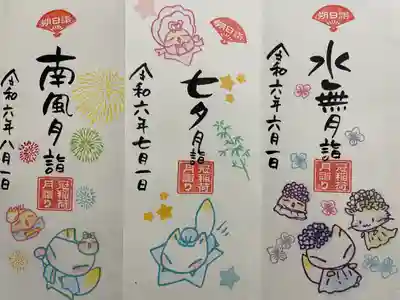 朔日詣
水無月詣
冠稲荷
月詣り
令和六年六月一日
朔日詣
七夕月詣
冠稲荷
月詣り
令和六年七月一日
朔日詣
南風月詣
冠稲荷
月詣り
令和六年八月一日